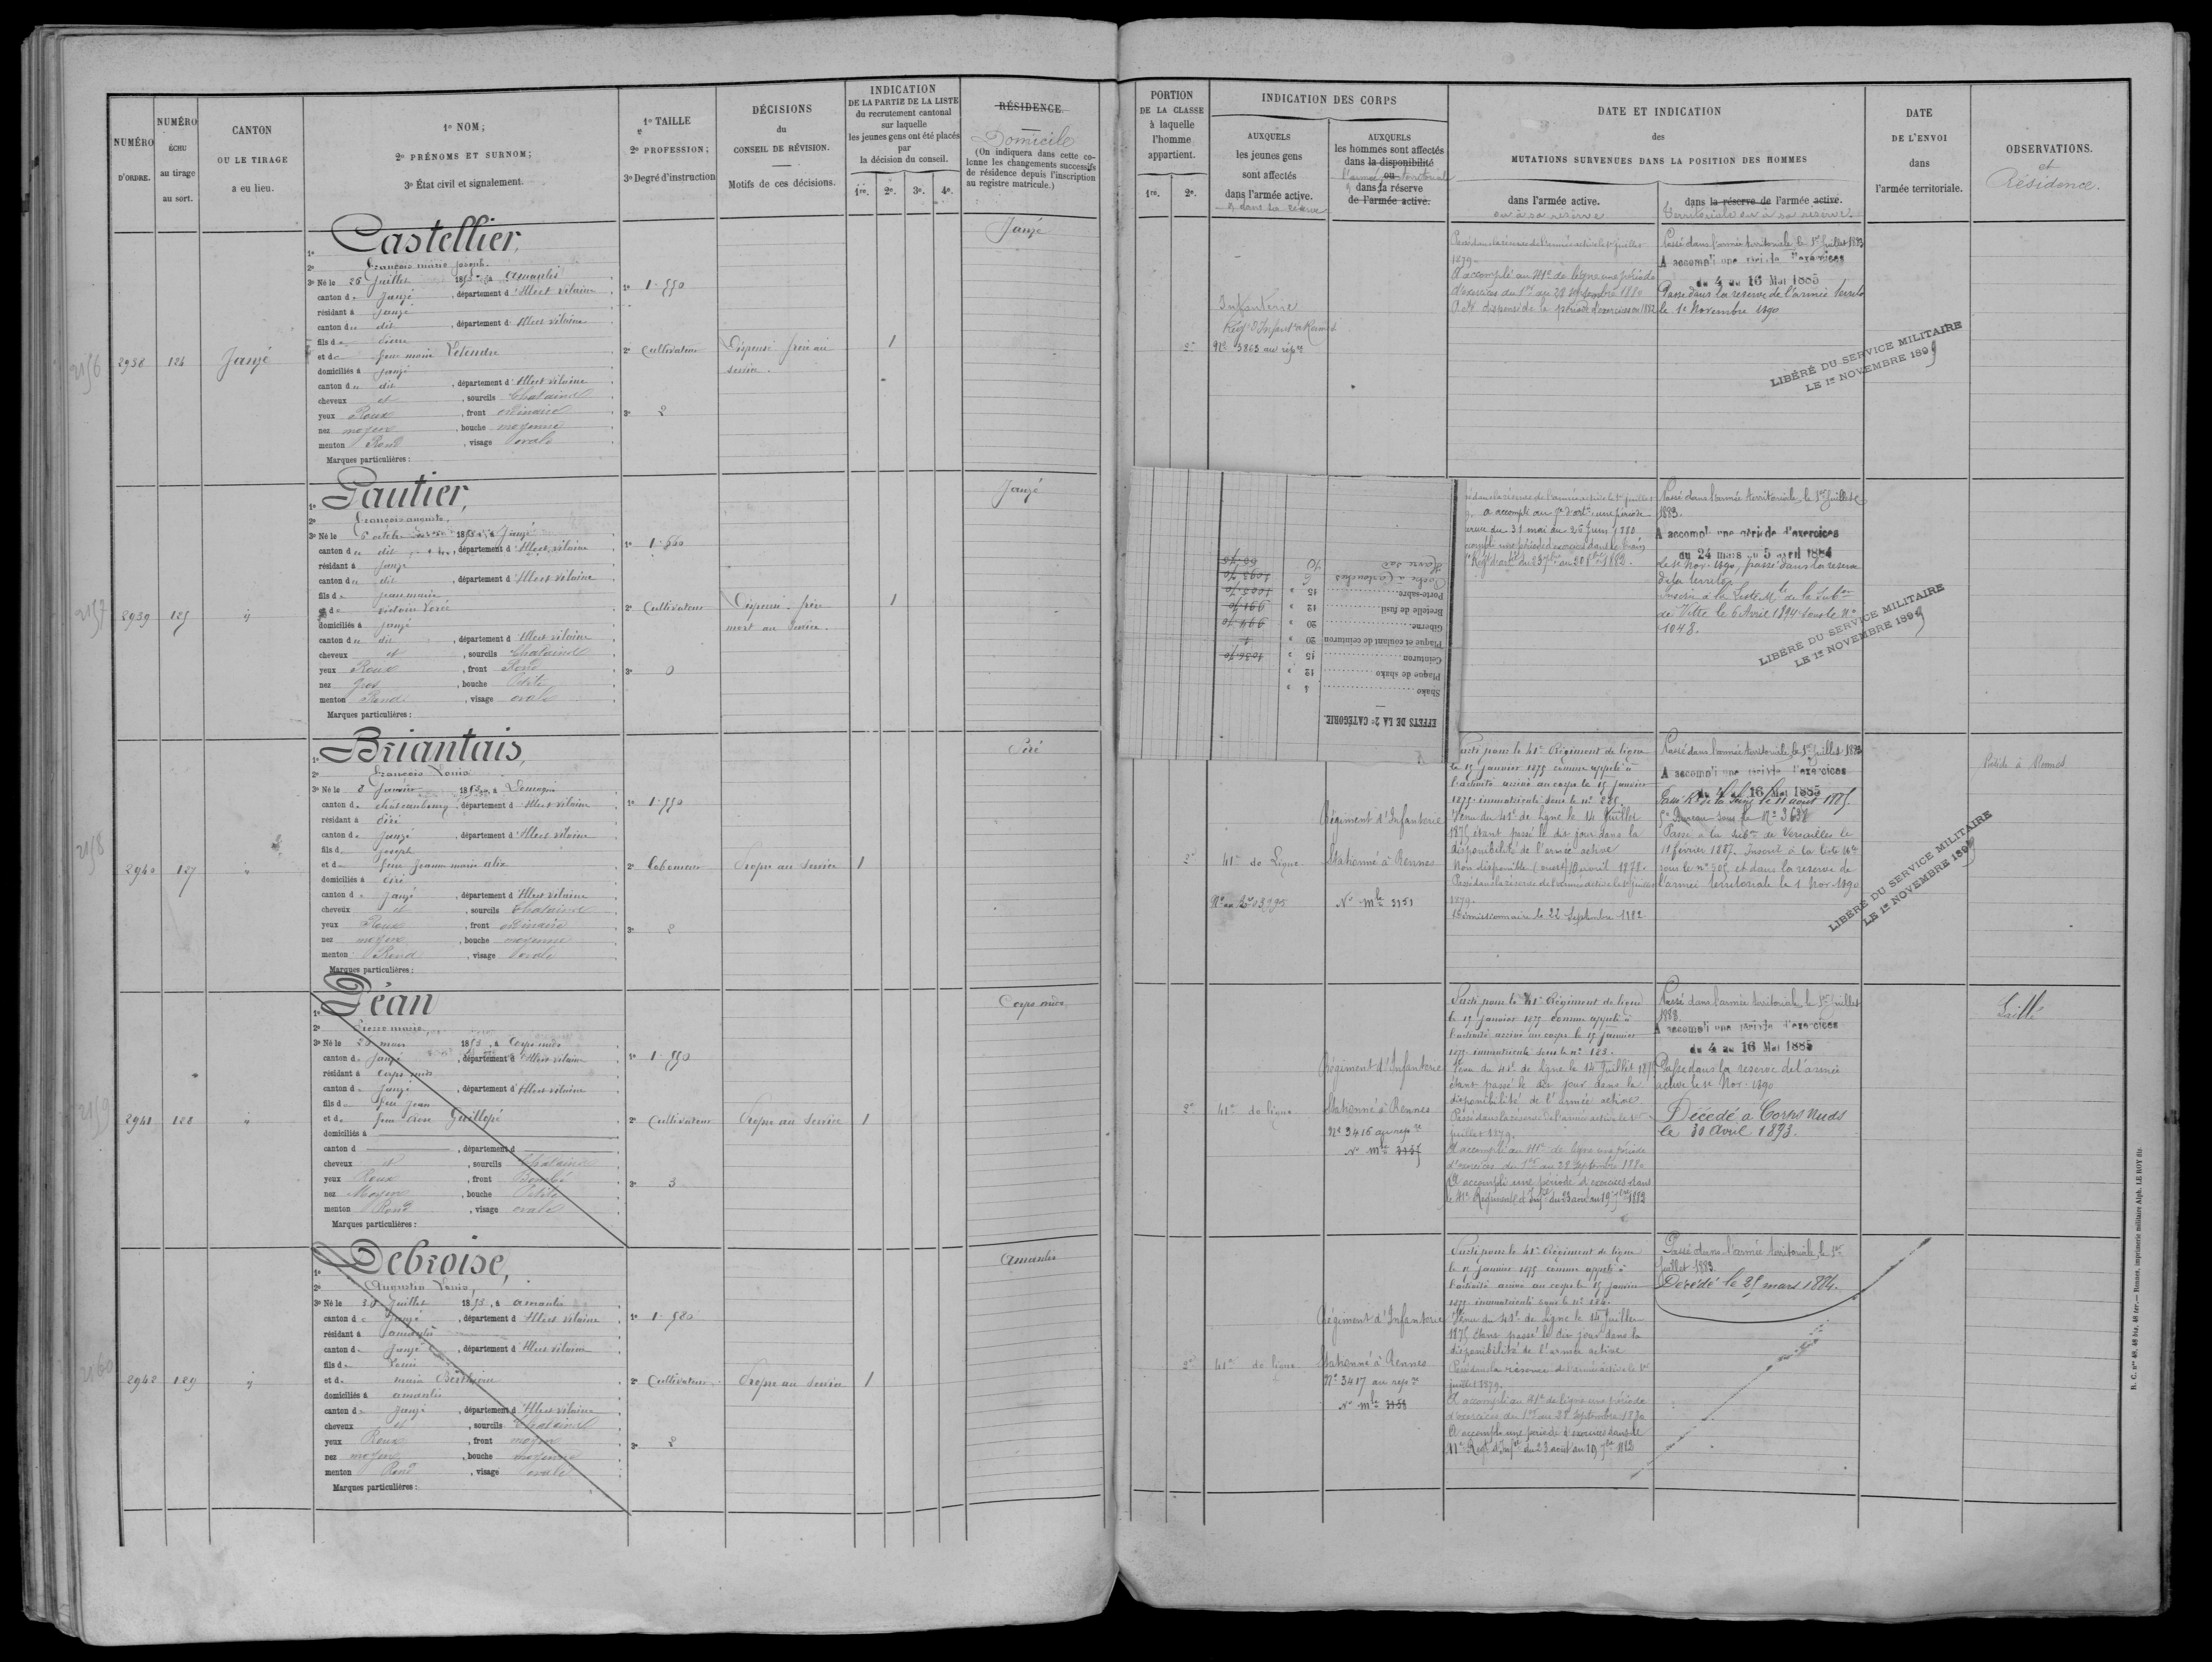 NUMÉRO D'ORDRE.
NUMÉRO ÉCHU au tirage au sort.
CANTON OU LE TIRAGE a eu lieu.
1º NOM;
2º PRÉNOMS ET SURNOM;
3º État civil et signalement.
1º TAILLE
2º PROFESSION;
3º Degré d'instruction
DÉCISIONS du CONSEIL DE RÉVISION.
Motifs de ces décisions.
INDICATION DE LA PARTIE DE LA LISTE du recrutement cantonal sur laquelle les jeunes gens ont été placés par la décision du conseil.
1re. 2e. 3e. 4e.
RÉSIDENCE.
Domicile
(On indiquera dans cette colonne les changements successifs de résidence depuis l'inscription au registre matricule.)
2156
2938
124
Janzé
1º Castellier,
2º François marie joseph.
3º Né le 26 Juillet 1853, à Amanlis
canton de Janzé, département d'Illeet vilaine
résidant à Janzé
canton du dit, département d'Illeet vilaine
et de marie Letendre
domiciliés à Janzé
canton du dit, département d'Illeet vilaine
cheveux et, sourcils Chatains
yeux Roux, front ordinaire
nez moyen, bouche moyenne
menton Rond, visage ovale
Marques particulières:
1º 1.550
2º Cultivateur
3º 2
1
Janzé
2157
2939
125
1º Gautier,
2º François auguste.
canton du dit, département d'Illeet vilaine
résidant à Janzé
canton du dit, département d'Illeet vilaine
fils de jean marie
domiciliés à Janzé
canton du dit, département d'Illeet vilaine
cheveux et, sourcils Chatains
yeux Roux, front Rond
nez Gros, bouche Petite
menton Rond, visage ovale
Marques particulières:
1º 1.660
2º Cultivateur
Dispensé frère mort au service.
3º 0
1
Janzé
2158
2940
127
1º Briantais,
2º François Louis
3º Né le 8 Janvier 1853, à Domagné
canton de châteaubourg, département d'Illeet vilaine
canton de Janzé, département d'Illeet vilaine
fils de joseph
et de feue jeanne marie alix
canton de Janzé, département d'Illeet vilaine
cheveux et, sourcils Chatains
yeux Roux, front ordinaire
nez moyen, bouche moyenne
menton Rond, visage ovale
Marques particulières:
1º 1.550
2º Laboureur
Propre au service
3º 2
1
2159
2941
128
1º Déan
2º Pierre marie
3º Né le 23 mars 1853, à Corps nuds
canton de Janzé, département d'Illeet vilaine
résidant à Corps nuds
canton de Janzé, département d'Illeet vilaine
fils de feu Jean
domiciliés à
canton d, département d
cheveux et, sourcils Chatains
yeux Roux, front Bombé
nez Moyen, bouche Petite
menton Rond, visage ovale
Marques particulières:
1º 1.550
2º Cultivateur
Propre au service
3º 3
1
Corps nuds
2160
2942
129
1º Debroise,
2º Augustin Louis,
3º Né le 30 Juillet 1853, à amanlis
canton de Janzé, département d'Illeet vilaine
résidant à amanlis
canton de Janzé, département d'Illeet vilaine
fils de Louis
domiciliés à amanlis
canton de Janzé, département d'Illeet vilaine
cheveux et, sourcils Chatains
yeux Roux, front moyen
nez moyen, bouche moyenne
menton Rond, visage ovale
Marques particulières:
1º 1.580
2º Cultivateur
Propre au service
3º 2
1
Amanlis
PORTION DE LA CLASSE à laquelle l'homme appartient.
1re. 2e.
INDICATION DES CORPS
AUXQUELS les jeunes gens sont affectés dans l'armée active.
et dans la réserve
AUXQUELS les hommes sont affectés dans la disponibilité ou dans la réserve de l'armée active.
l'armée territoriale
DATE ET INDICATION
des
MUTATIONS SURVENUES DANS LA POSITION DES HOMMES
dans l'armée active.
ou à sa réserve
dans la réserve de l'armée active.
territoriale ou à sa réserve
DATE DE L'ENVOI dans l'armée territoriale.
OBSERVATIONS.
et
Résidence.
2e
Infanterie
Nº 3863 au répre
Passé dans la réserve de l'armée active le 1er juillet
1879.
A accompli au 41e de ligne une période
d'exercices du 1er au 28 septembre 1880
A été dispensé de la période d'exercices en 1882
Passé dans l'armée territoriale le 1er Juillet 1883
A accompli une période d'exercices
du 4 au 16 Mai 1885
Passé dans la réserve de l'armée territo
le 1er Novembre 1890
LIBÉRÉ DU SERVICE MILITAIRE
LE 1er NOVEMBRE 1899
EFFETS DE LA 2e CATÉGORIE.
Shako
Plaque de shako 12
Ceinturon 15
Plaque et coulant de ceinturon 20
Giberne 20
Bretelle de fusil 12
Porte-sabre 15
Poche à Cartouches
Havre sac 40
Passé dans l'armée territoriale, le 1er Juillet
1883.
A accompli une période d'exercices
du 24 mars au 5 avril 1884
le 1er Nov. 1890, passé dans la réserve
de la territle
Inscrit à la Liste Mle de la Subon
de Vitré le 6 Avril 1894 sous le Nº
1048.
LIBÉRÉ DU SERVICE MILITAIRE
LE 1er NOVEMBRE 1899
2e
41e de Ligne
Régiment d'Infanterie
Stationné à Rennes
Nº mle 3151
Parti pour le 41e Régiment de ligne
le 15 janvier 1875 comme appelé à
l'activité arrivé au corps le 15 janvier
1875 immatriculé sous le nº 285.
Venu du 41e de ligne le 14 Juillet
1875 étant passé le dit jour dans la
disponibilité de l'armée active
Passé dans la réserve de l'armée active le 1er juillet
1879.
Démissionnaire le 22 Septembre 1882
Passé dans l'armée territoriale le 1er juillet 1883
A accompli une période d'exercices
du 4 au 16 Mai 1885
Passé à la subon de Versailles le
11 février 1887. Inscrit à la liste Mle
sous le nº 505 et dans la réserve de
l'armée territoriale le 1 Nov. 1890
LIBÉRÉ DU SERVICE MILITAIRE
Réside à Rennes
2e
41e de ligne
Régiment d'Infanterie
Stationné à Rennes
Nº 3416 au répre
Nº mle 3157
Parti pour le 41e Régiment de ligne
le 15 janvier 1875 comme appelé à
l'activité arrivé au corps le 15 janvier
1875 immatriculé sous le nº 183.
Venu du 41e de ligne le 14 Juillet 1875
étant passé le dit jour dans la
disponibilité de l'armée active
Passé dans la réserve de l'armée active le 1er
juillet 1879.
A accompli au 41e de ligne une période
d'exercices du 1er au 28 Septembre 1880
A accompli une période d'exercices dans
le 41e Régiment d'Infie du 23 août au 19 7bre 1882
Passé dans l'armée territoriale le 1er Juillet
1883.
A accompli une période d'exercices
du 4 au 16 Mai 1885
Passé dans la réserve de l'armée
active le 1er Nov. 1890
Décédé à Corps Nuds
le 30 Avril 1893.
2e
41e de ligne
Régiment d'Infanterie
Stationné à Rennes
Nº 3417 au répre
Nº mle 3158
Parti pour le 41e Régiment de ligne
le 15 janvier 1875 comme appelé à
l'activité arrivé au corps le 15 janvier
1875 immatriculé sous le nº 184.
Venu du 41e de ligne le 14 Juillet
1875 étant passé le dit jour dans la
disponibilité de l'armée active
Passé dans la réserve de l'armée active le 1er
juillet 1879.
A accompli au 41e de ligne une période
d'exercices du 1er au 28 Septembre 1880
A accompli une période d'exercices dans le
41e Régt d'Infie du 23 août au 19 7bre 1882
Passé dans l'armée territoriale, le 1er
Juillet 1883.
Décédé le 25 mars 1884.
R. C. nos 48, 48 bis, 48 ter. — Rennes, imprimerie militaire Alph. LE ROY fils